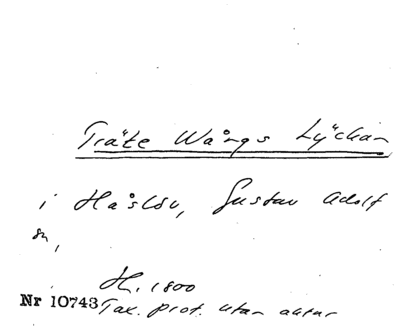 Träte Wångs Lyckan
i Håslöv, Gustav Adolf
sn,
H. 1800
Nr 10743 Tax. prot. utan aktnr